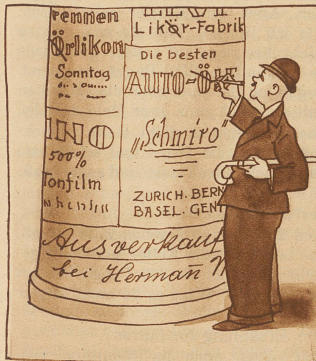 rennen
Örlikon
Sonntag
INO
500%
Tonfilm
Likör-Fabrik
Die besten
AUTO-ÖLE
„Schmiro"
ZURICH. BERN
BASEL. GENF
Ausverkauf
bei Herman